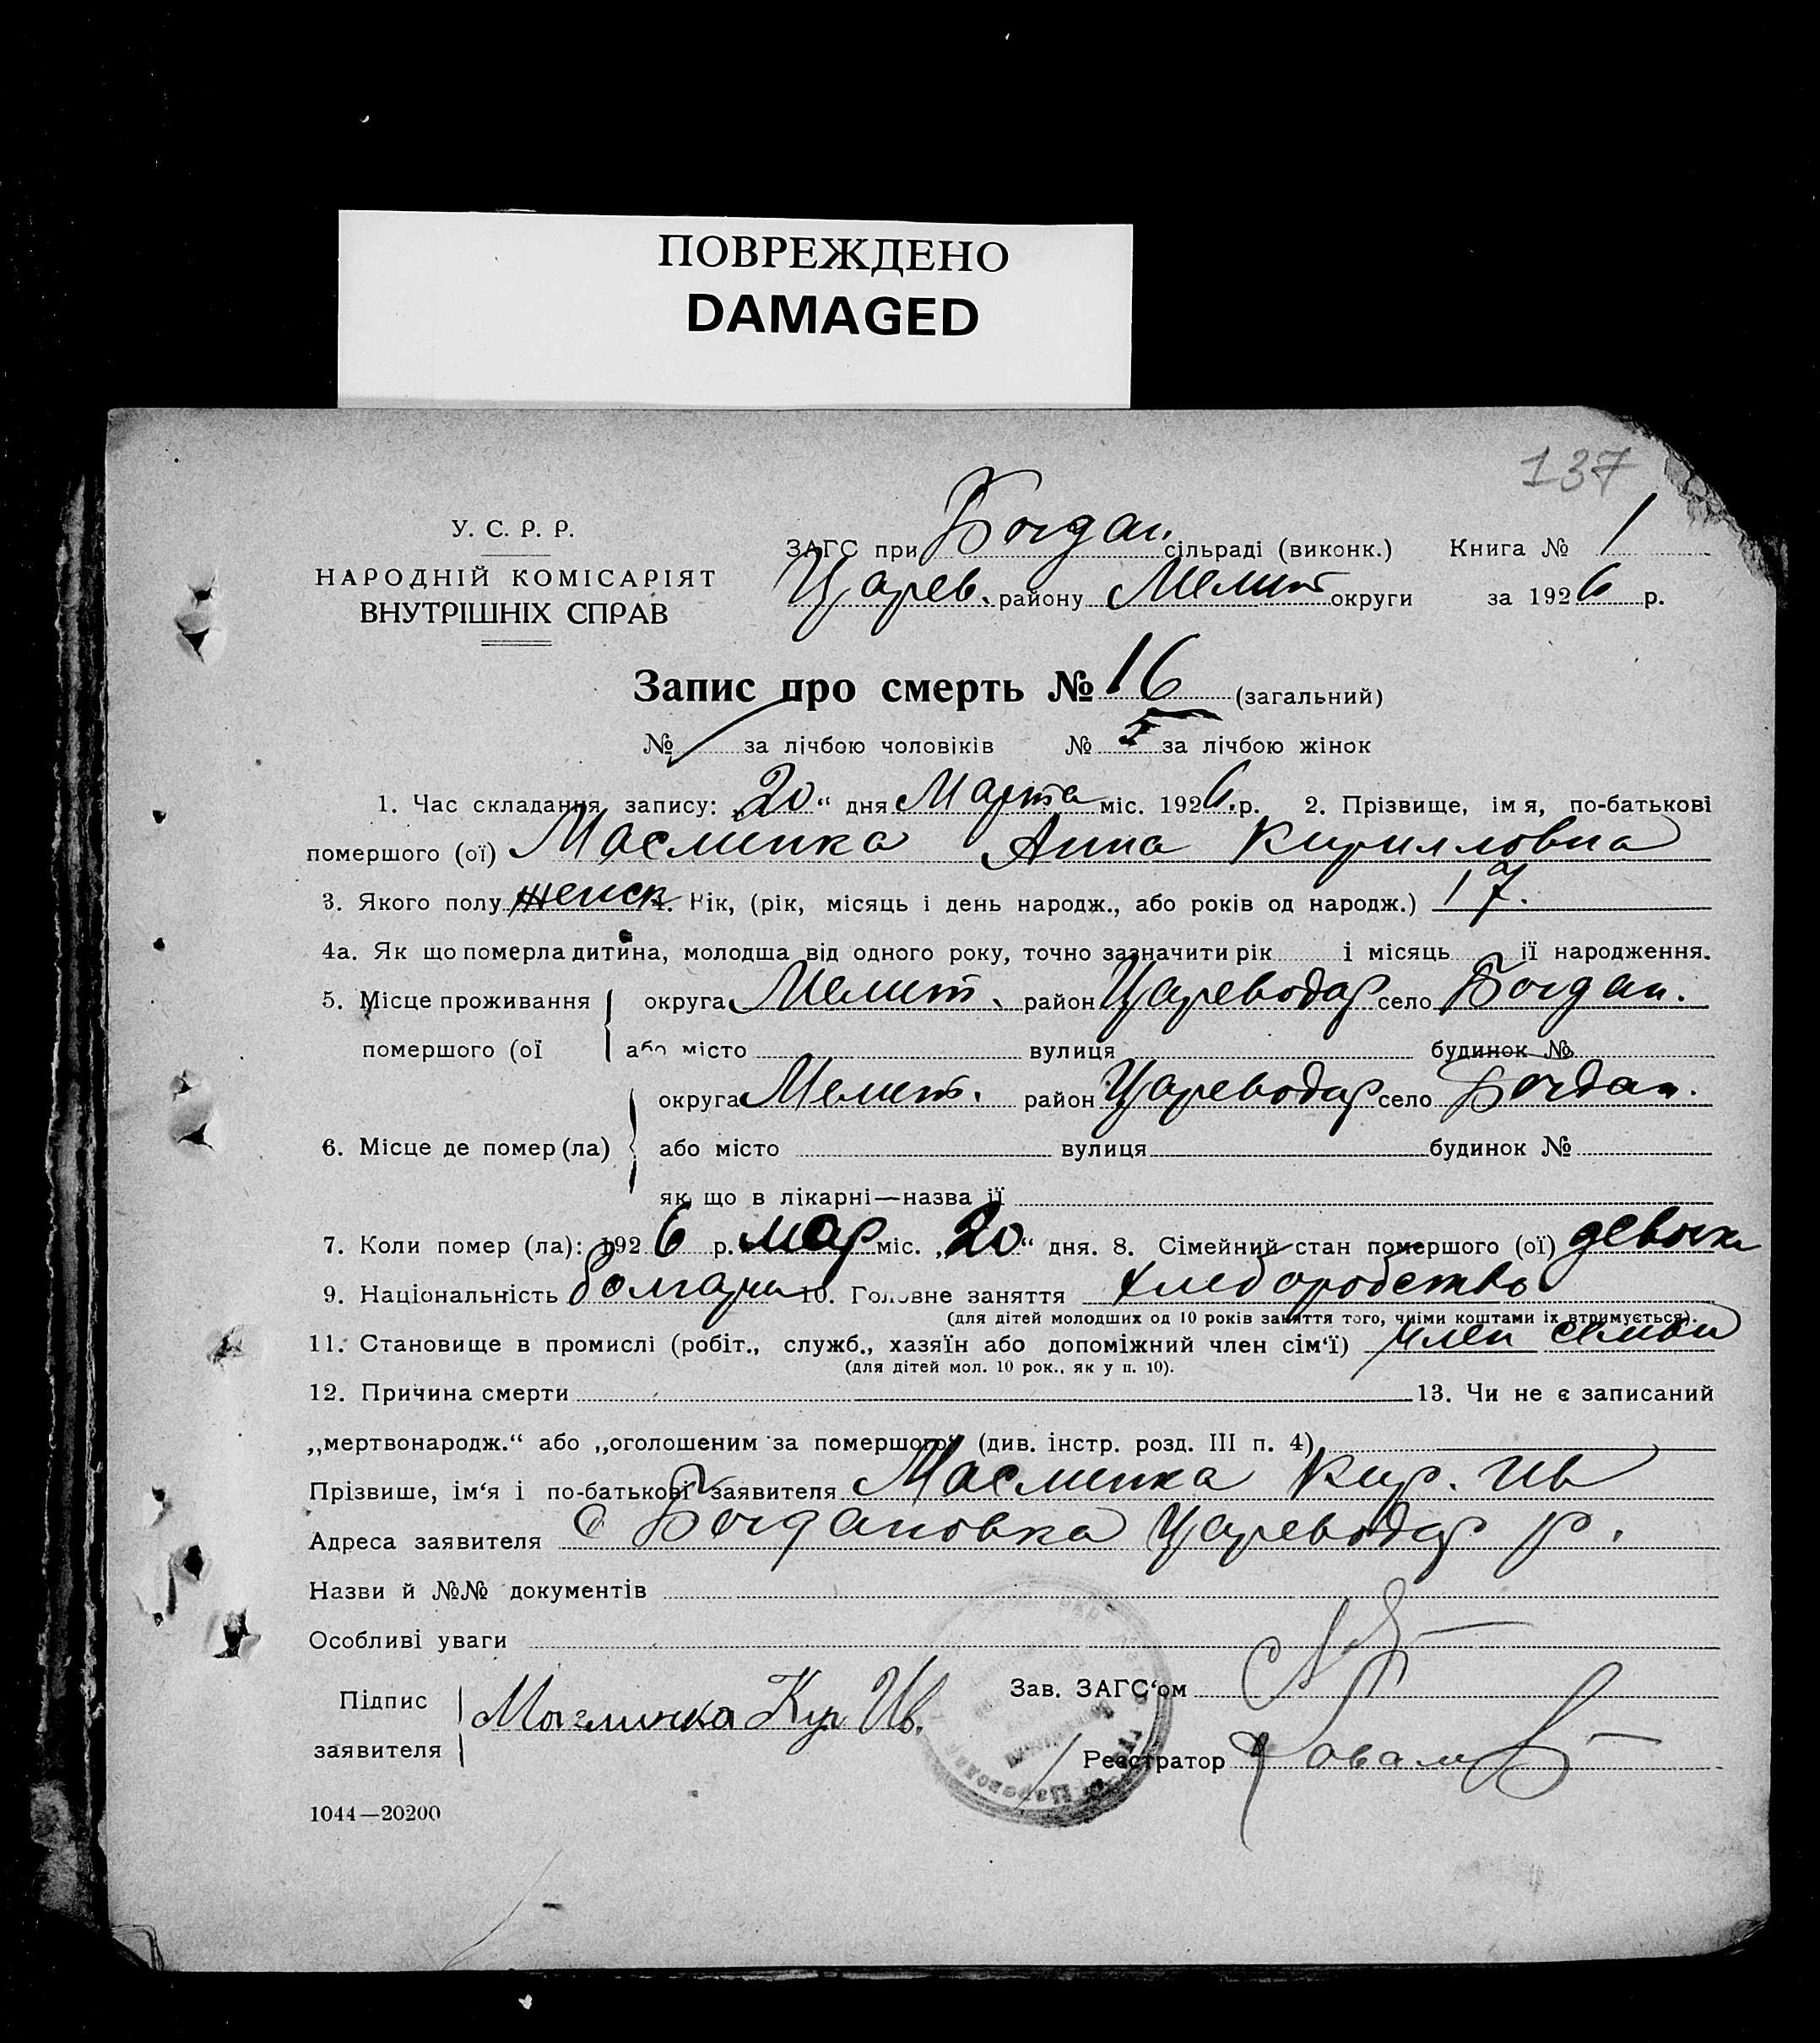 ПОВРЕЖДЕНО
DAMAGED
137
У. С. Р. Р.
НАРОДНІЙ КОМІСАРІЯТ
ВНУТРІШНІХ СПРАВ
ЗАГС при Богдан. сільраді (виконк.) Книга № 1
Царев. району Мелит округи за 1926 р.
Запис про смерть № 16 (загальний)
№ за лічбою чоловіків № 5 за лічбою жінок
1. Час складання запису: „20“ дня Марта міс. 1926. р. 2. Прізвище, імя, по-батькові
помершого (ої) Маслинка Анна Кирилловна
3. Якого полу женск 4. Рік, (рік, місяць і день народж., або років од народж.) 17.
4а. Як що померла дитина, молодша від одного року, точно зазначити рік і місяць її народження.
5. Місце проживання округа Мелит. район Цареводар село Богдан.
помершого (ої або місто вулиця будинок №
округа Мелит. район Цареводар село Богдан.
6. Місце де помер (ла) або місто вулиця будинок №
як що в лікарні—назва її
7. Коли помер (ла): 1926 р. мар міс. „20“ дня. 8. Сімейний стан помершого (ої) девочка
9. Національність болгары 10. Головне заняття хлебородство
(для дітей молодших од 10 років заняття того, чиїми коштами їх втримується).
11. Становище в промислі (робіт., служб., хазяїн або допоміжний член сім‘ї) член семьи
(для дітей мол. 10 рок., як у п. 10).
12. Причина смерти 13. Чи не є записаний
„мертвонародж.“ або „оголошеним за помершого“ (див. інстр. розд. III п. 4)
Прізвище, ім‘я і по-батькові заявителя Маслинка Кир. Ив
Адреса заявителя с Богдановка Цареводар р.
Назви й №№ документів
Особливі уваги
Підпис Зав. ЗАГС‘ом
заявителя Маслинка Кир Ив.
Реєстратор
1044—20200